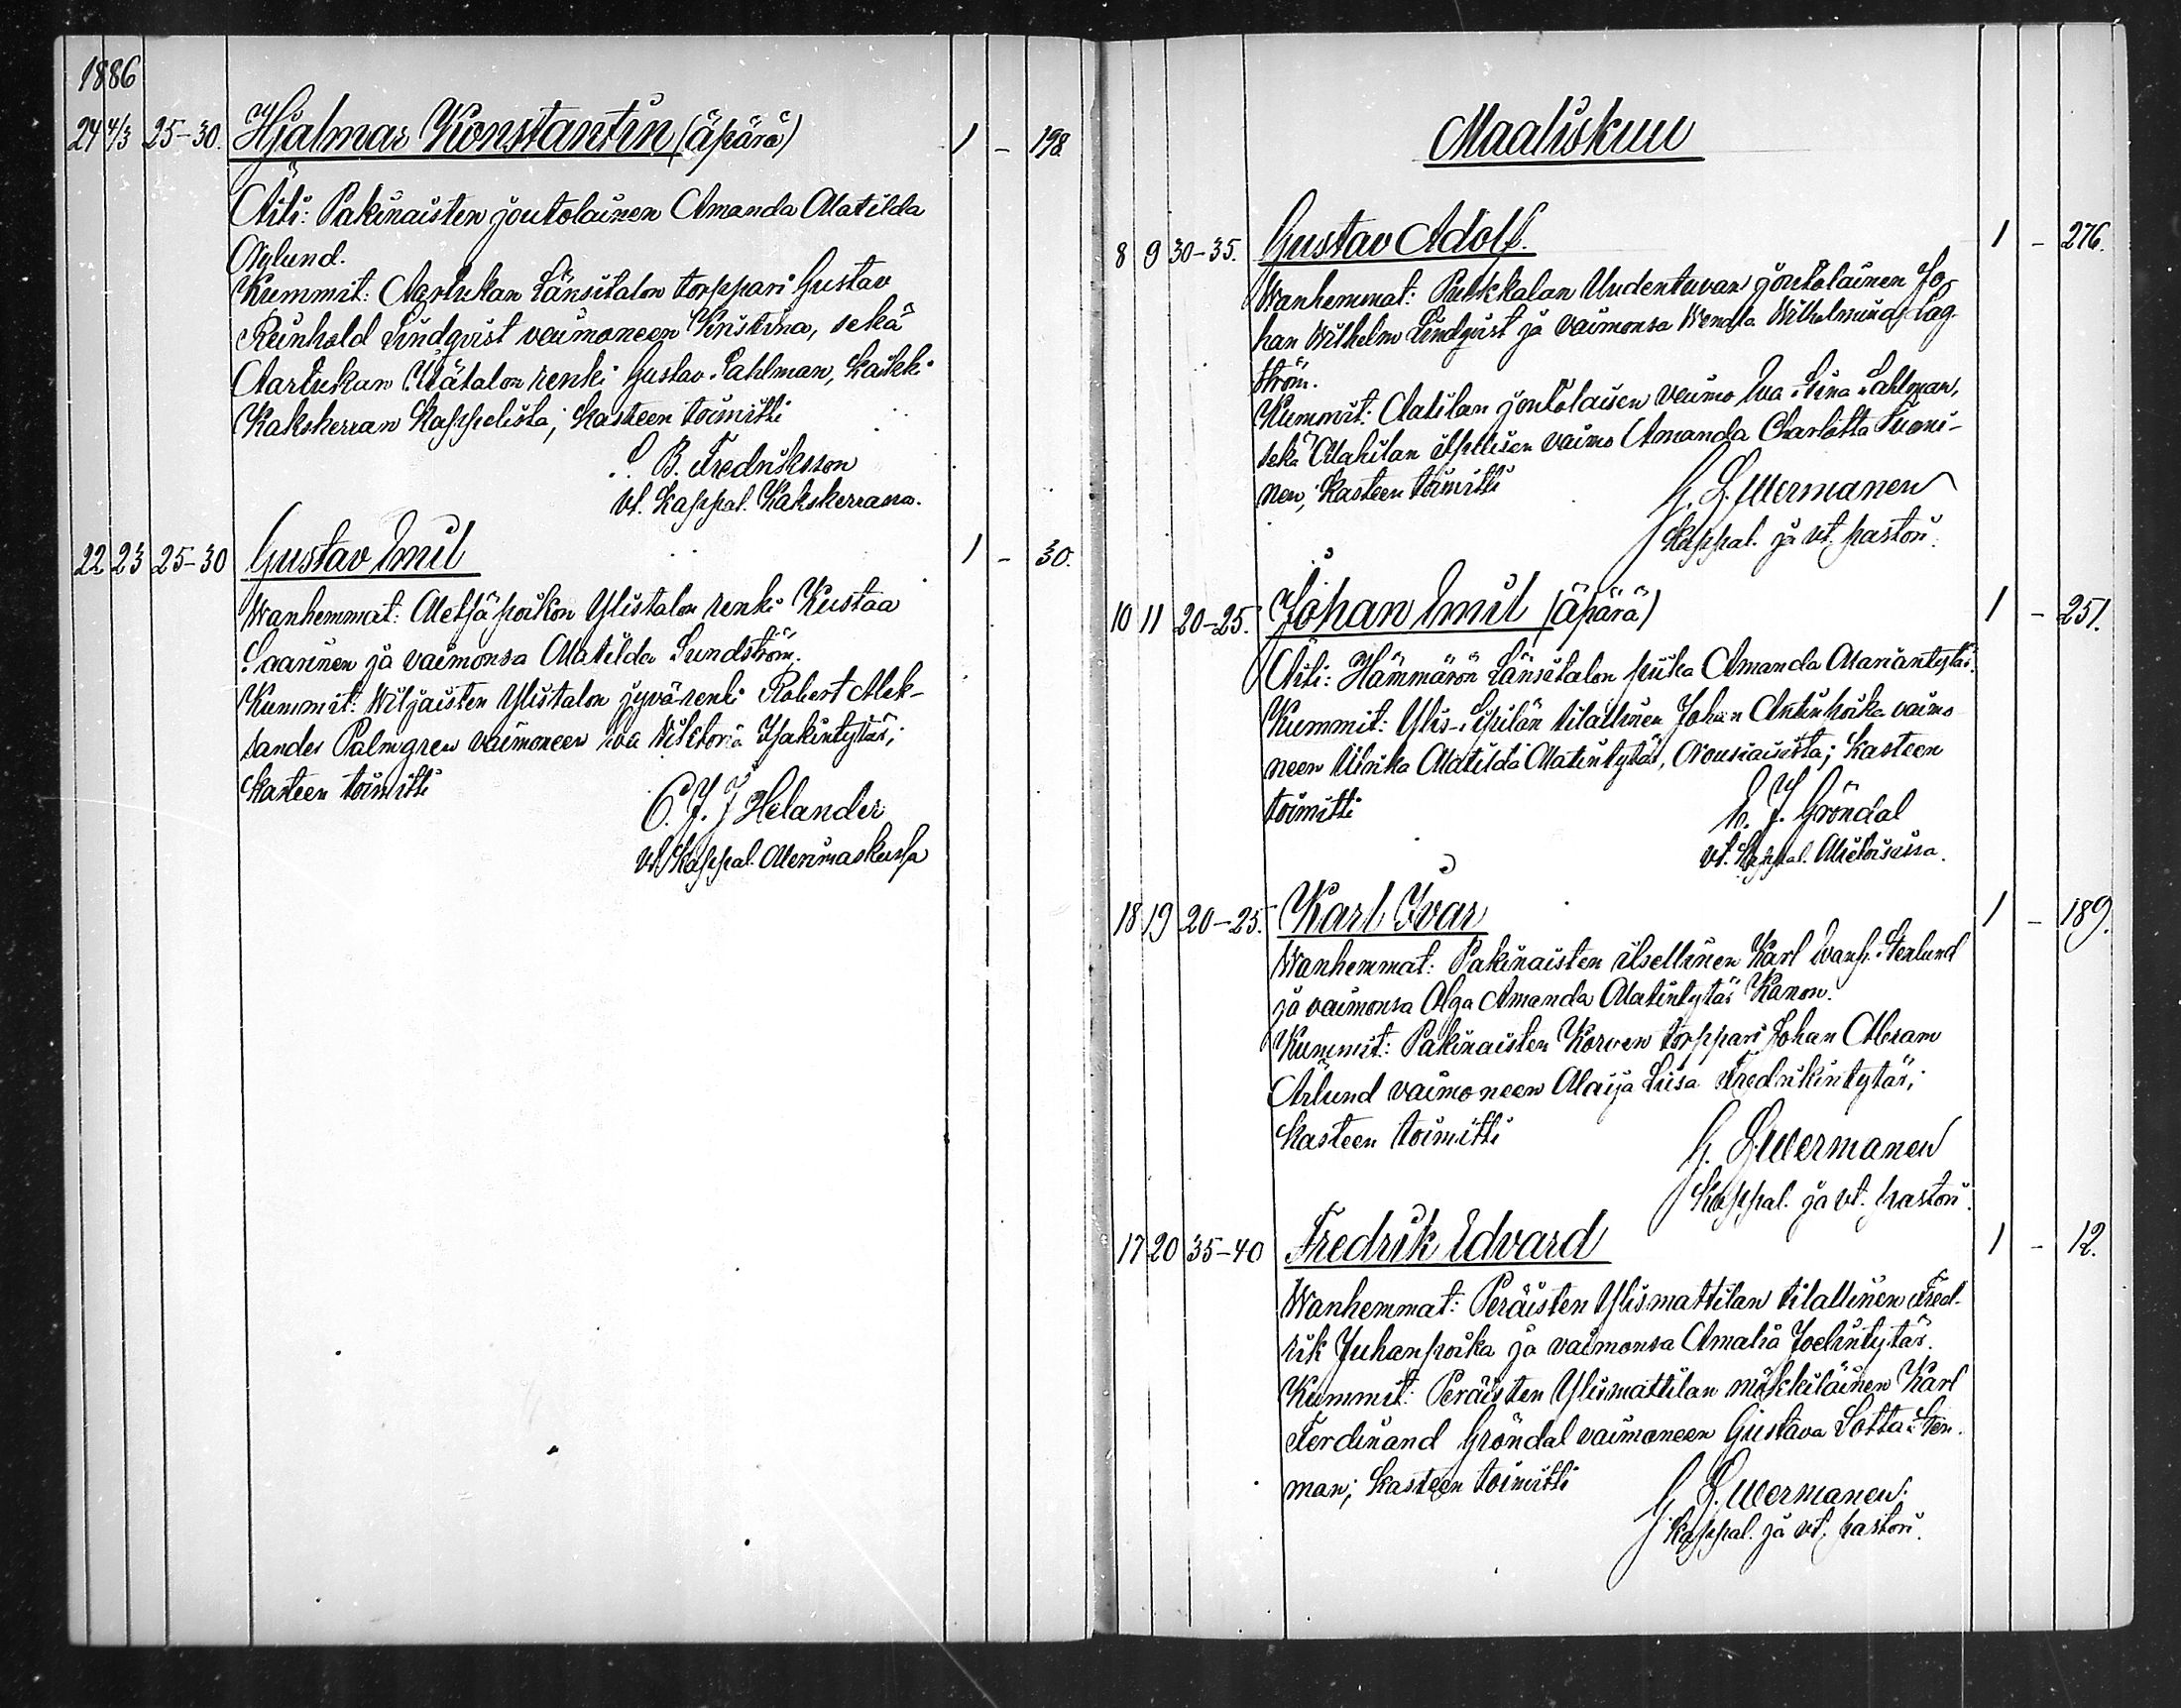 1886
24 4/3 25-30. Hjalmar Konstantin (äpärä) 1 - 198.
Äiti: Pakinaisten joutolainen Amanda Matilda
Nylund.
Kummit: Aarlukan Länsitalon torppari Gustav
Reinhold Lindqvist vaimoneen Kristina, sekä
Aarlukan Itätalon renki Gustav Sahlman, kaikki
Kakskerran kappelista; kasteen toimitti
B. Fredriksson
vt. kappal. Kakskerrassa.
22 23 25-30 Gustav Emil 1 - 30.
Wanhemmat: Metsäpoikon Ylistalon renki Kustaa
Saarinen ja vaimonsa Matilda Sundström.
Kummit: Wiljaisten Ylistalon jyvärenki Robert Alek-
sander Palmgren vaimoneen Eva Wiktoria Isakintytär;
kasteen toimitti
C. J. J Helander
vt. Kappal. Merimaskussa
Maaliskuu
8 9 30-35. Gustav Adolf. 1 - 276.
Wanhemmat: Uudentuvan joutolainen Jo-
han Wilhelm Lindqvist ja vaimonsa Wendla Wilhelmina Lag-
ström.
Kummit: joutolaisen vaimo Eva Stina Sahlman,
sekä itsellisen vaimo Amanda Charlotta Suomi-
nen; kasteen toimitti
G. L. Wermanen
kappal. ja vt. pastori.
10 11 20-25. Johan Emil (äpärä) 1 - 251.
Äiti: Hämmärön Länsitalon piika Amanda Mariantytär.
Kummit: Ylis-Sipilän tilallinen Johan Antinpoika vaimo-
neen Ulrika Matilda Matintytär, Nousiaisista; kasteen
toimitti
J. Gröndal
vt. kappal. Mietoisissa.
18 19 20-25. Karl Ivar 1 - 189.
Wanhemmat: Pakinaisten itsellinen Karl Evanp. Stenlund
ja vaimonsa Olga Amanda Matintytär Kanon.
Kummit: Pakinaisten Korven torppari Johan Abram
Ärlund vaimoneen Maija Liisa Fredrikintytär;
kasteen toimitti
G. L. Wermanen
Kappal. ja vt. pastori.
17 20 35-40 Fredrik Edvard 1 - 12.
Wanhemmat: Peräisten Ylismattilan tilallinen Fred-
rik Juhanpoika ja vaimonsa Amalia Joelintytär.
Kummit: Peräisten Ylismattilan mökkiläinen Karl
Ferdinand Gröndal vaimoneen Gustava Lotta Sten-
man; kasteen toimitti
G. L. Wermanen.
kappal. ja vt. pastori.